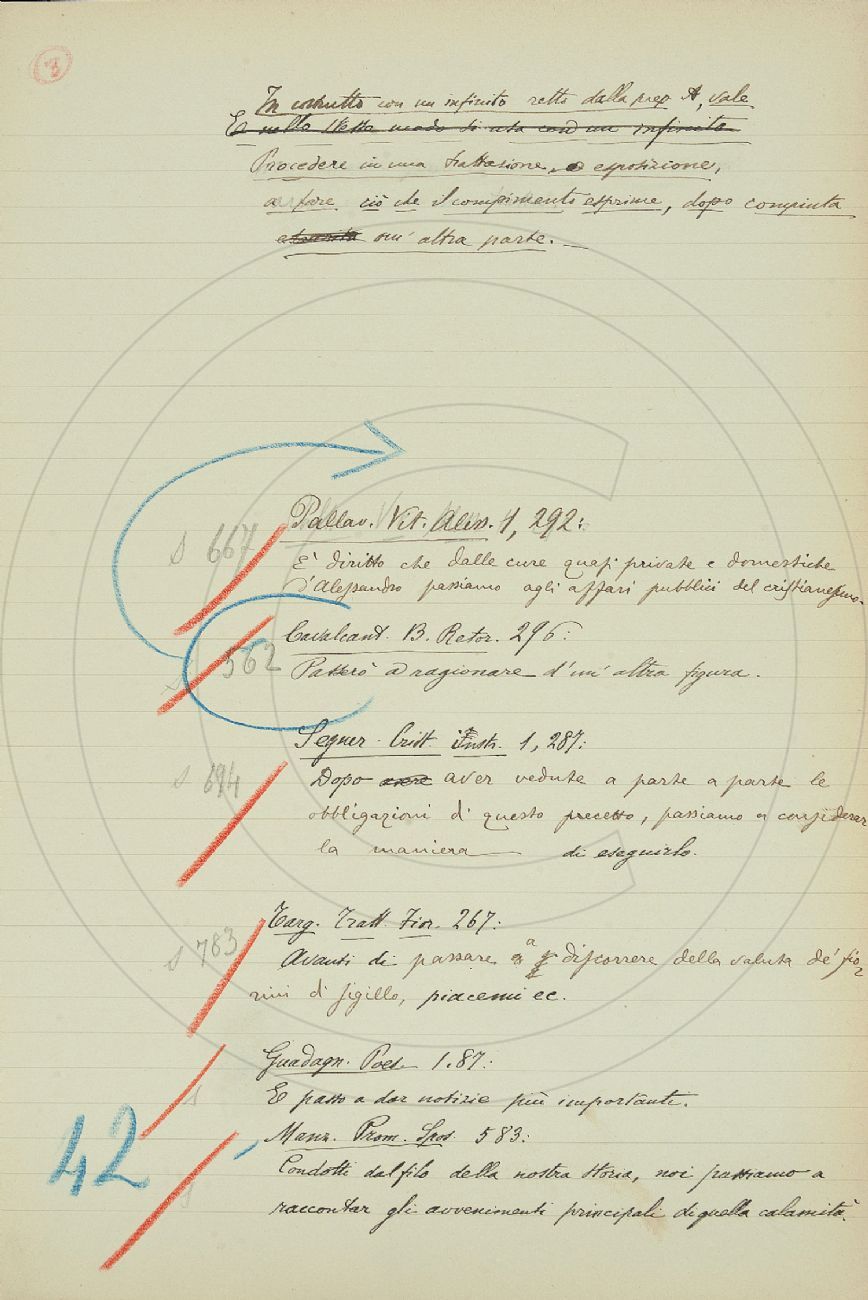 3
In costrutto con un infinito retto dalla prep A, vale
E nello stesso modo si usa con un infinito
Procedere in una trattazione, o esposizione,
a fare ciò che il compimento esprime, dopo compiuta
esaurita un' altra parte. —
Pallav. Vit. Aless. 1, 292:
S 667
È diritto che dalle cure quasi private e domestiche
d'Alessandro passiamo agli affari pubblici del cristianesimo.
Cavalcant. B. Retor. 296:
S 562
Passerò a ragionare d'un' altra figura.
Segner. Crist. Instr. 1, 287:
S 694
Dopo avere aver vedute a parte a parte le
obbligazioni di questo precetto, passiamo a considerar
la maniera di eseguirlo.
Targ. Tratt. Fior. 267:
S 783
Avanti di passare a discorrere della valuta de' fio
rini di sigillo, piacemi ec.
Guadagn. Poes. 1. 87:
S
E passo a dar notizie più importanti.
42
Manz. Prom. Spos. 583:
S
Condotti dal filo della nostra storia, noi passiamo a
raccontar gli avvenimenti principali di quella calamità.